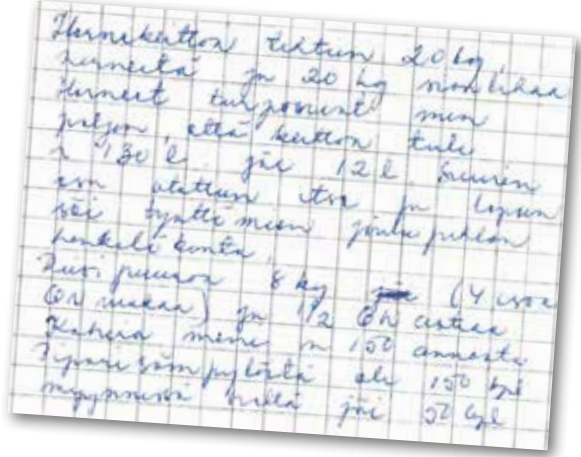 Hernekeittoa tehtiin 20 kg
herneitä ja 20 kg sianlihaa
Herneet turposivat niin
paljon, että keittoa tuli
n 130 l jäi 12 l. Suurin
osa otettiin itse ja lopun
söi työttömien joulujuhlan
henkilökunta.
Riisipuuroa 8 kg (4 isoa
GN vuokaa) ja 1/2 GN astiaa
Kahvia meni n 150 annosta
Piparisämpylöitä oli 150 kpl
myynnissä niitä jäi 50 kpl